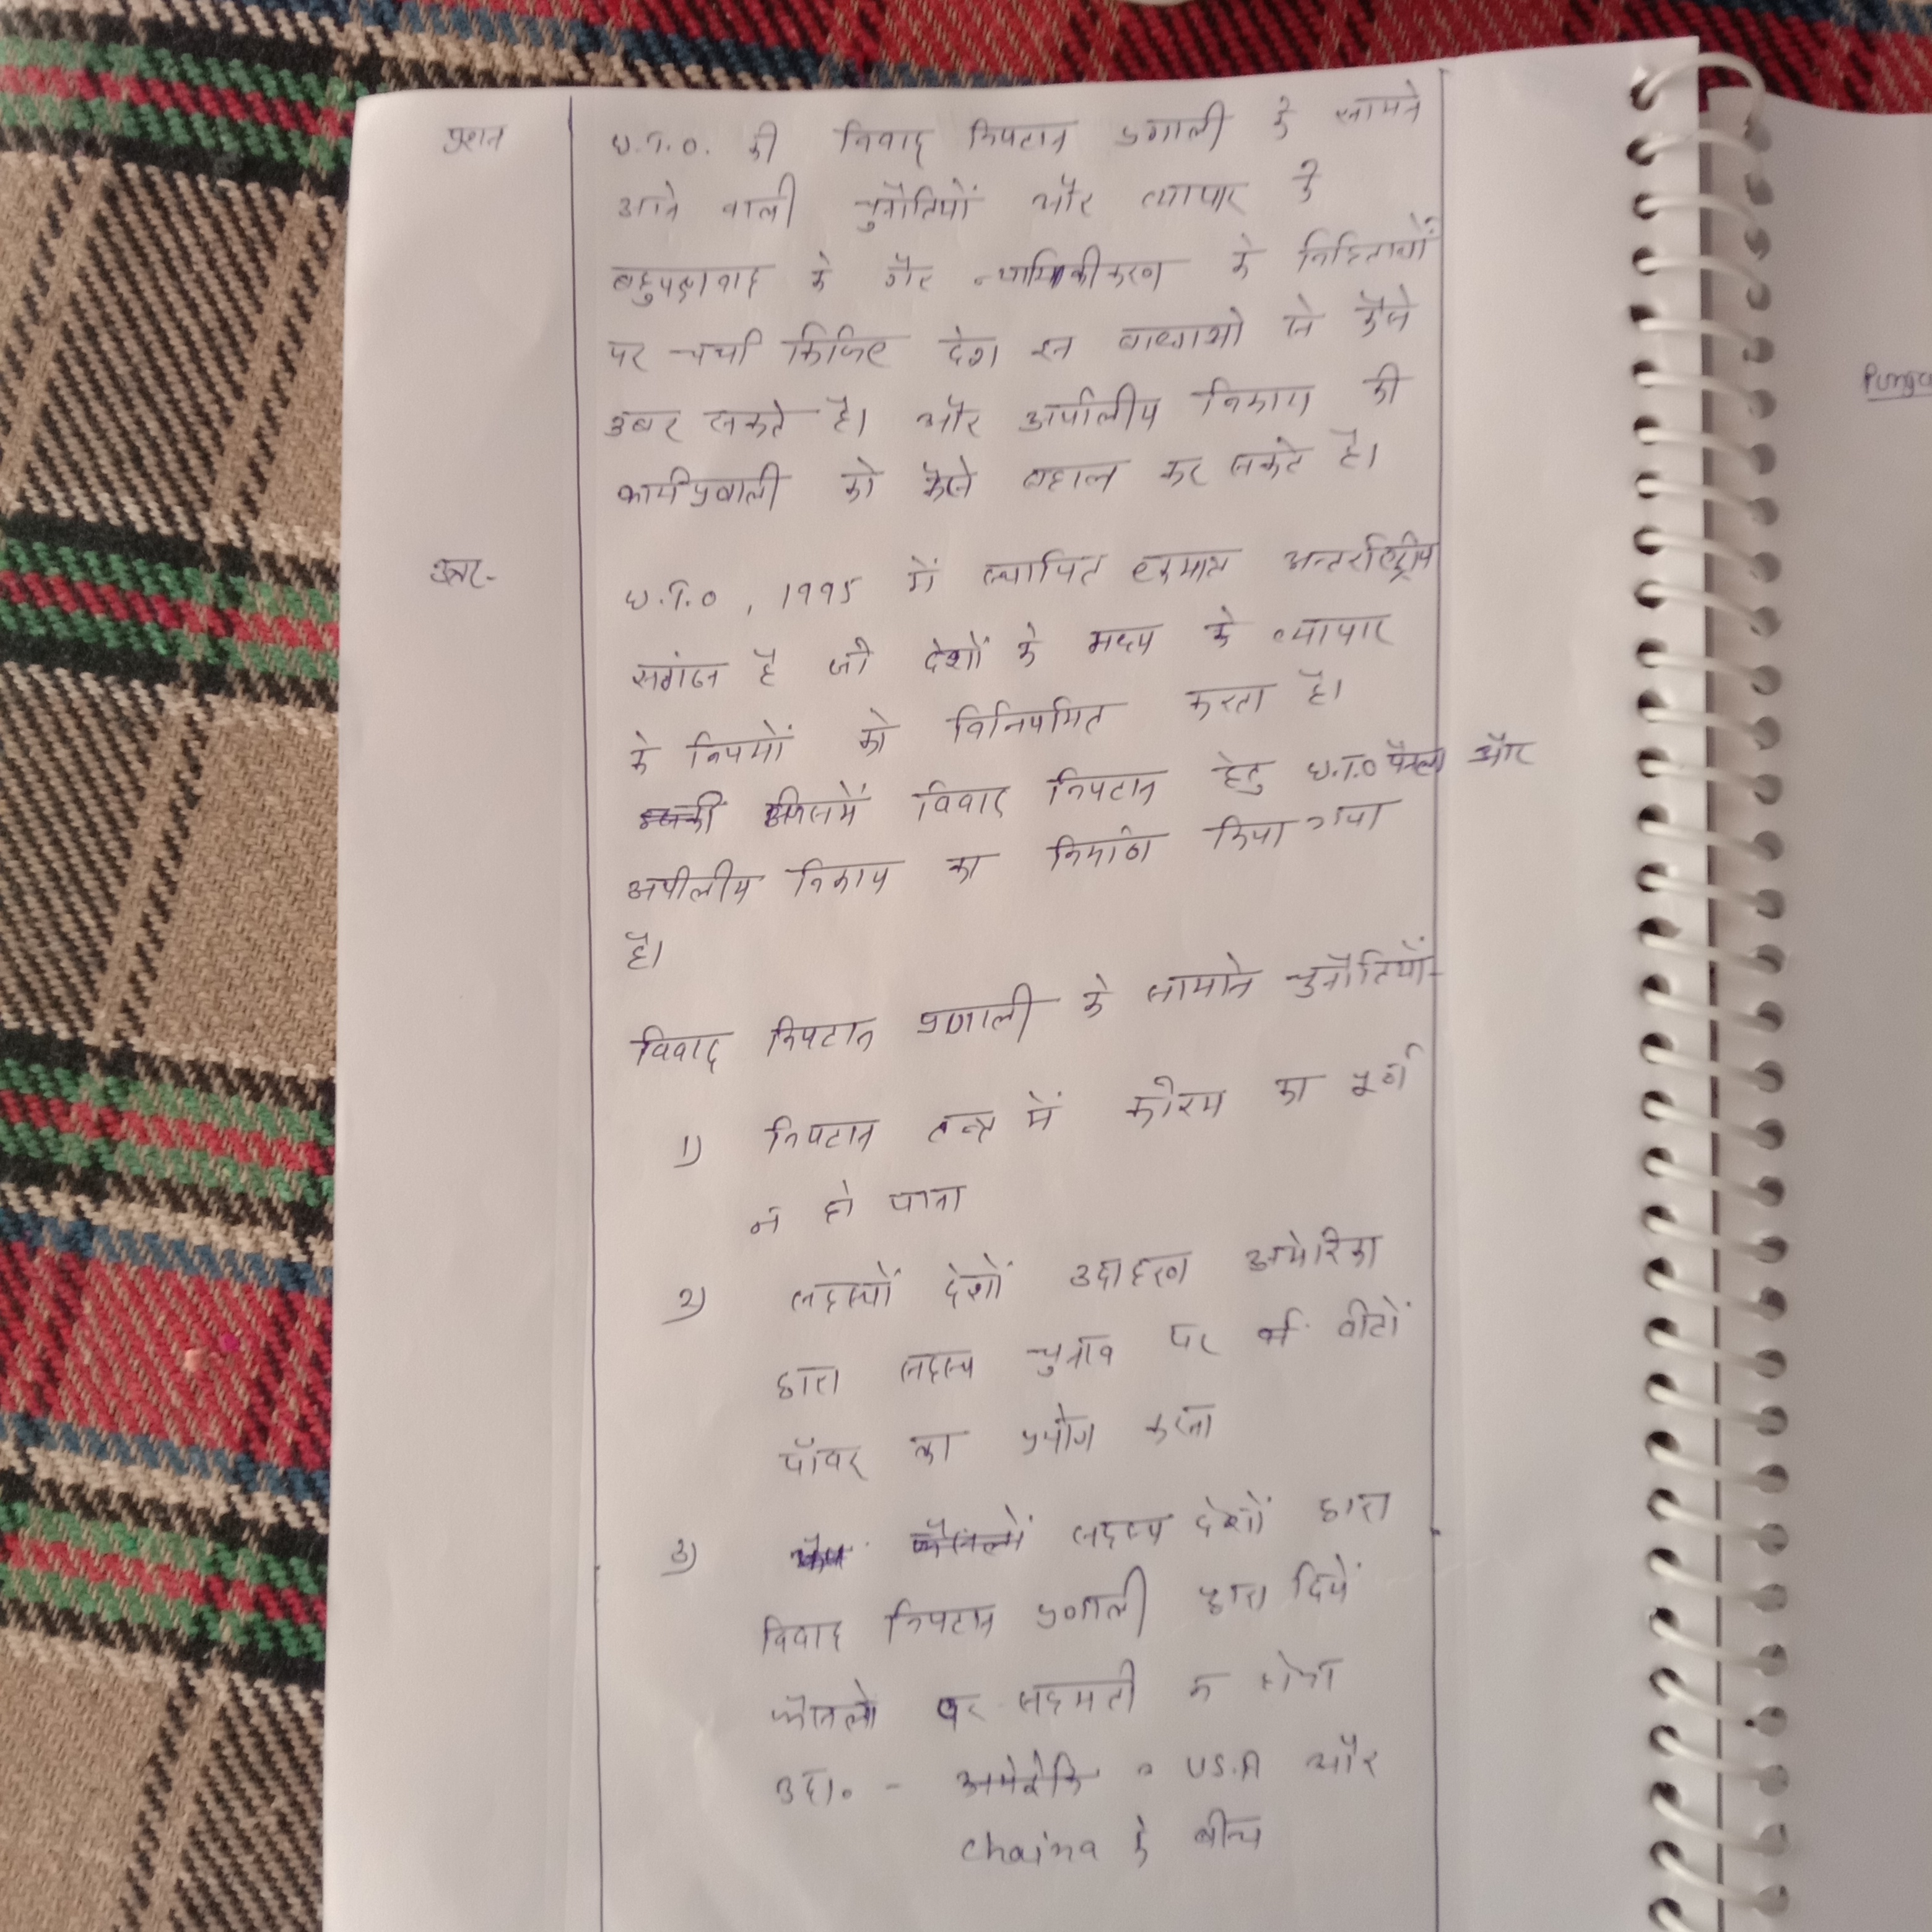 प्रश्न W.T.O. की विवाद निपटान प्रणाली के सामने
आने वाली चुनौतियों और व्यापार के
बहुपक्षवाद के गैर न्यायिकीकरण के निहितार्थों
पर चर्चा किजिए देश इन बाधाओ से कैसे
उबर सकते है। और अपीलीय निकाय की
कार्यप्रणाली को कैसे बहाल कर सकते है।
उत्तर- W.T.O, 1995 में स्थापित एकमात्र अन्तर्राष्ट्रीय
सगंठन है जो देशों के मध्य के व्यापार
के नियमों को विनियमित करता है।
जिसमें विवाद निपटान हेतु W.T.O पैनल और
अपीलीय निकाय का निर्माण किया गया
है।
विवाद निपटान प्रणाली के सामाने चुनौतियाँ-
1) निपटान तन्त्र में कोरम का पूर्ण
न हो पाना
2) सदस्यों देशों उदाहरण अमेरिका
द्वारा सदस्य चुनाव पर वीटों
पॉवर का प्रयोग करना
3) सदस्य देशों द्वारा
विवाद निपटान प्रणाली द्वारा दियें
फैसलो पर सहमती न होना
उदा॰ - U.S.A और
Chaina के बीच
Punga